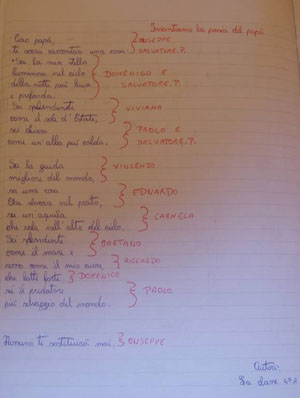 Inventiamo la poesia del papà
Ciao papà, } GIUSEPPE
ti vorrei raccontare una cosa } SALVATORE.P.
Sei la mia stella
luminosa nel cielo } DOMENICO E
della notte più buia SALVATORE.P.
e profonda.
Sei splendente } VIVIANA
come il sole d'Estate,
sei chiaro } PAOLO E
come un'alba più calda. SALVATORE.P.
Sei la guida } VINCENZO
migliore del mondo,
sei una rosa } EDUARDO
nel prato,
sei un'aquila } CARMELA
che vola nell'alto del cielo.
Sei splendente } GAETANO
come il mare e
rosso come il mio cuore } RICCARDO
che batte forte } DOMENICO
sei il predatore } PAOLO
più selvaggio del mondo.
Nessuno ti sostituirà mai. } GIUSEPPE
Autori:
La classe 4ª A